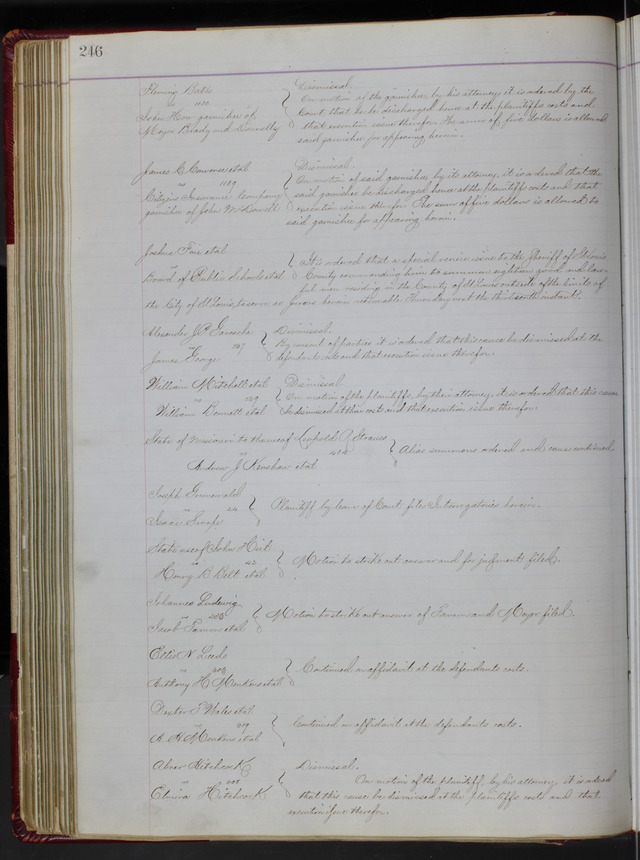 246
Fleming Bates Dismissal.
vs On motion of the garnishee by his attorney it is ordered by the
John How garnishee of Court that he be discharged hence at the plaintiffs costs and
Mayor Brady and Connelly that execution issue therefor. The sum of five dollars is allowed
said garnishee for appearing herein.
James C. et al Dismissal.
vs 1189 On motion of said garnishee by its attorney, it is ordered that the
Citizens Insurance Company said garnishee be discharged hence at the plaintiffs costs and that
garnishee of John McDowell execution issue therefor. The sum of five dollars is allowed to
said garnishee for appearing herein.
Joshua et al
vs It is ordered that a special venire issue to the Sheriff of St Louis
Board of Public Schools et al County commanding him to summon eighteen good and law-
ful men residing in the County of St Louis outside of the limits of
the City of St Louis, to serve as jurors herein returnable Thursday next the thirteenth instant.
Alexander J.P. Garesche Dismissal.
vs 207 By consent of parties it is ordered that this cause be dismissed at the
James George defendants costs and that execution issue therefor.
William Mitchell et al Dismissal
vs On motion of the plaintiffs by their attorney it is ordered that this cause
William Bennett et al be dismissed at their costs and that execution issue therefor.
State of Missouri to the use of Leopold Strauss
vs Alias summons ordered and cause continued
Andrew J. Kershaw et al
Joseph
vs Plaintiff by leave of Court files Interrogatories herein.
Isaac
State use of John Heit
vs Motion to strike out answer and for judgment filed.
Henry B. Belt et al
Johannes Ludewig
vs Motion to strike out answer of and Mayer filed.
Jacob et al
Ellis N. Leeds
vs Continued on affidavit at the defendants costs.
Anthony H. Menkens et al
Dexter T. Wales et al
vs Continued on affidavit at the defendants costs.
A. H. Menkens et al
Abner Hitchcock Dismissal.
vs On motion of the plaintiff, by his attorney, it is ordered
Elmira Hitchcock that this cause be dismissed at the plaintiffs costs and that
execution issue therefor.